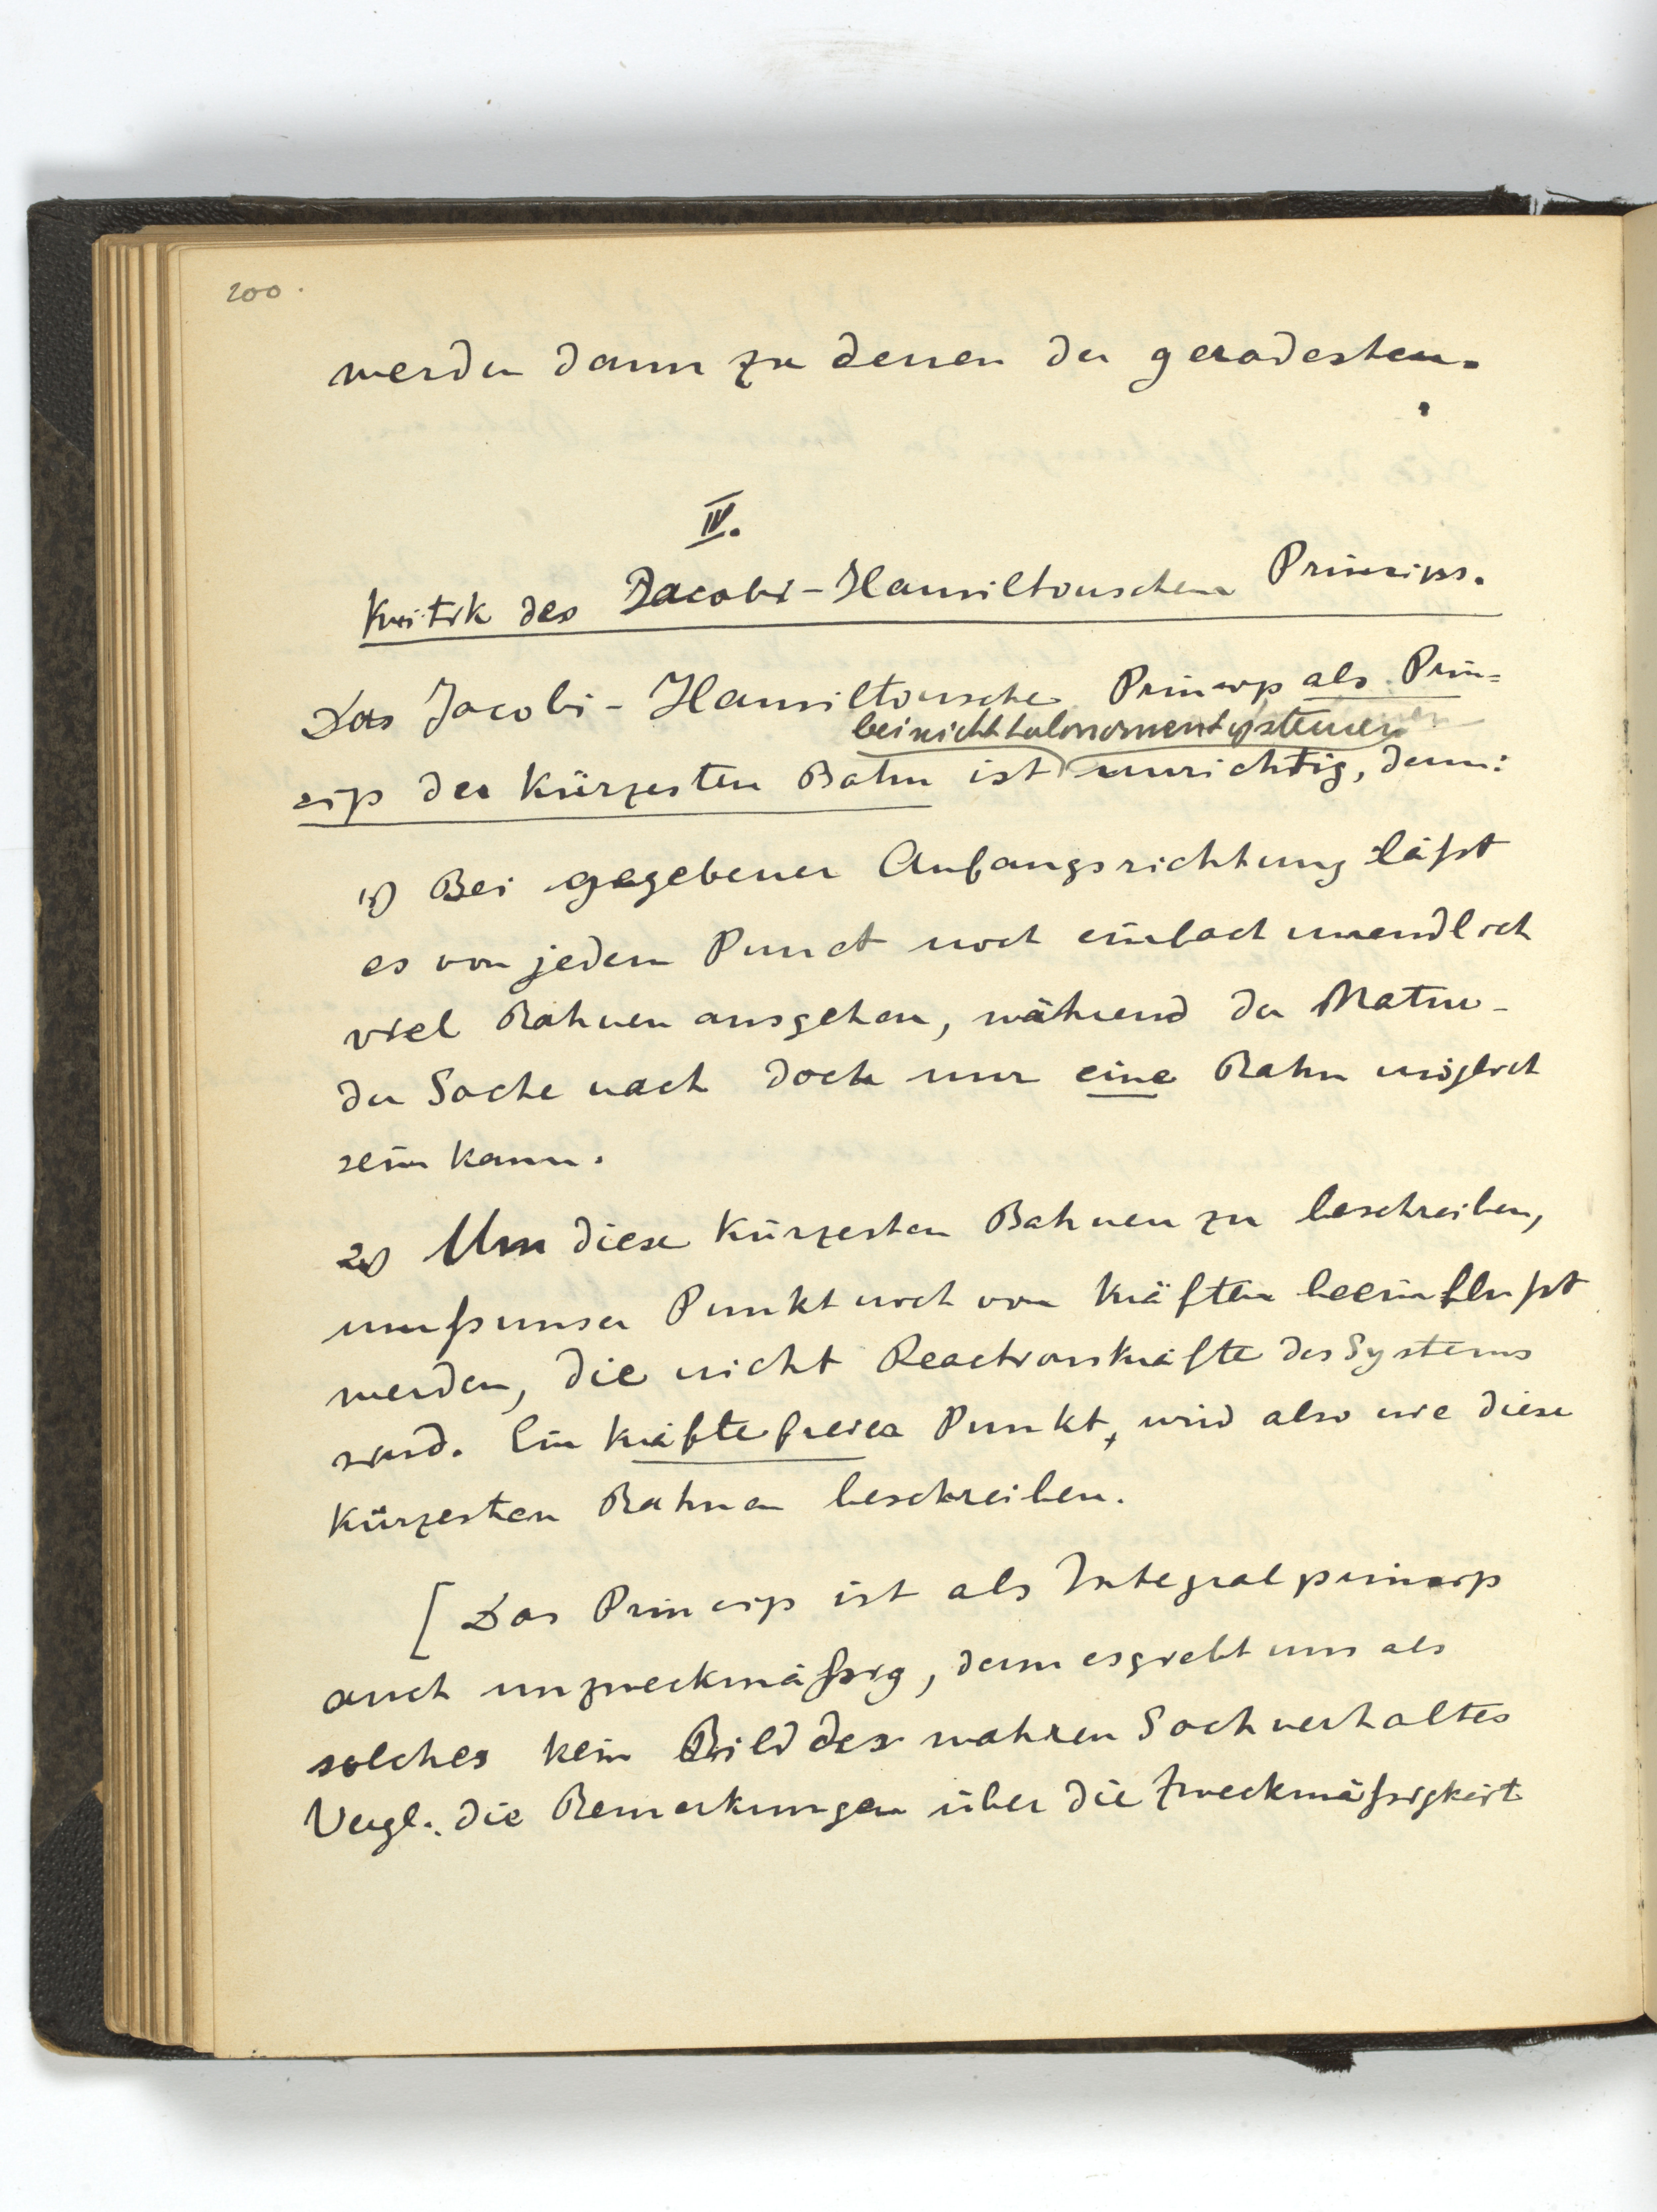 200.
werden dann zu denen der geradesten.
IV.
Kritik des Jacobi-Hamiltonschen Princips.
Das Jacobi-Hamiltonsche Princip als Prin=
bei nicht holonomen Systemen
cip der kürzesten Bahn ist unrichtig, denn:
1) Bei gegebener Anfangsrichtung läßt
es von jedem Punct noch einfach unendlich
viel Bahnen ausgehen, während der Natur
der Sache nach doch nur eine Bahn möglich
sein kann.
2) Um diese kürzesten Bahnen zu beschreiben,
muß unser Punkt noch von Kräften beeinflußt
werden, die nicht Reactionskräfte des Systems
sind. Ein kräftefreier Punkt, wird also nie diese
kürzesten Bahnen beschreiben.
[Das Princip ist als Integralprincip
auch unzweckmäßig, denn es giebt uns als
solches kein Bild des wahren Sachverhaltes
Vergl. die Bemerkungen über die Zweckmäßigkeit